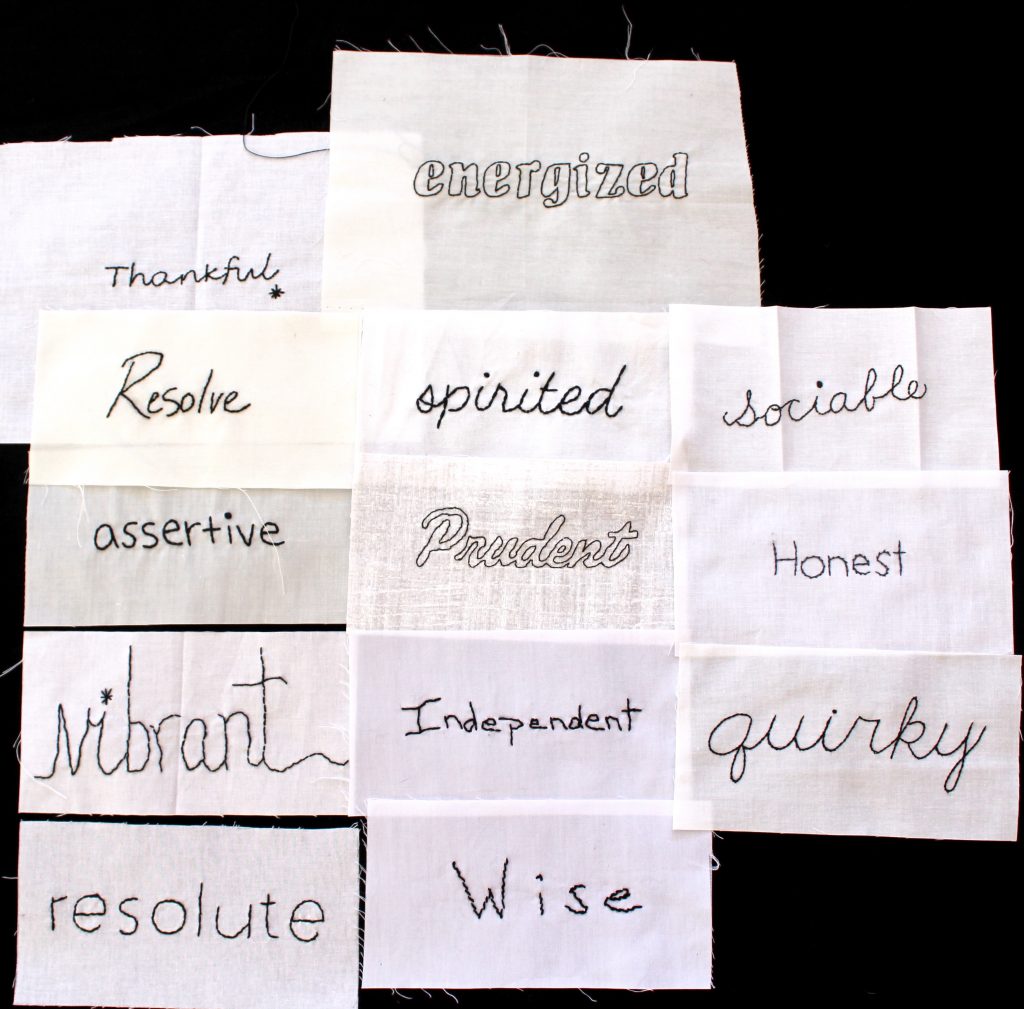 energized
Thankful
Resolve
spirited
sociable
assertive
Prudent
Honest
vibrant
Independent
quirky
resolute
Wise